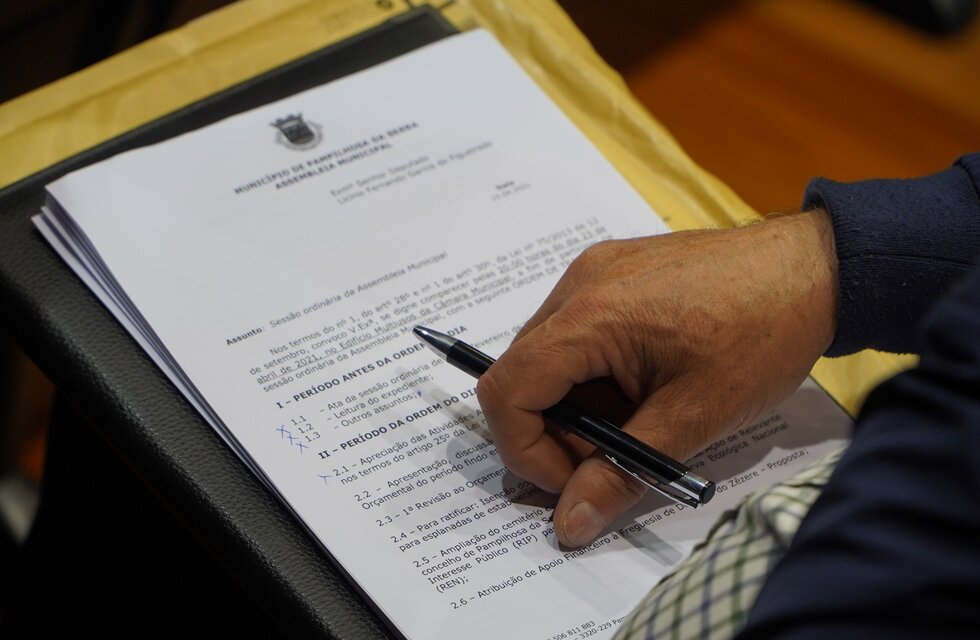 MUNICÍPIO DE PAMPILHOSA DA SERRA
ASSEMBLEIA MUNICIPAL
Exmº Senhor Deputado
Licínio Fernando Garcia de Figueiredo
Data
Assunto: Sessão ordinária da Assembleia Municipal
Nos termos do nº 1, do artº 28º e nº 1 do artº 30º, da Lei nº 75/2013 de 12
de setembro, convoco V.Exª, se digne comparecer pelas 20:00 horas do dia 23 de
abril de 2021, no Edifício Multiusos da Câmara Municipal, a fim de participar
sessão ordinária da Assembleia Municipal, com a seguinte ORDEM DE
I – PERÍODO ANTES DA ORDEM DO DIA
1.1 – Ata da sessão ordinária de fevereiro de
1.2 – Leitura do expediente;
1.3 – Outros assuntos;
II – PERÍODO DA ORDEM DO DIA
2.1 – Apreciação das Atividades
nos termos do artigo 25º da Lei
2.2 – Apresentação, discussão
Orçamental do período findo
2.3 – 1ª Revisão ao Orçamento
2.4 – Para ratificar: Isenção do
para esplanadas de
2.5 – Ampliação do cemitério
ação de Relevante
concelho de Pampilhosa da S
rva Ecológica Nacional
Interesse Público (RIP) pa
(REN);
2.6 – Atribuição de Apoio Financeiro à Freguesia de D do Zêzere – Proposta,
506 811 883
3320-229 Pam